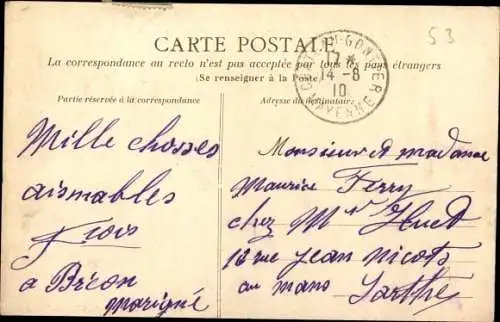 53
CARTE POSTALE
La correspondance au recto n'est pas acceptée par tous les pays étrangers
(Se renseigner à la Poste)
CHATEAU-GONTIER
14-8
10
MAYENNE
Partie réservée à la correspondance
Adresse du destinataire
Mille choses
aismables
à Bréon
Marigné
Monsieur et madame
Maurice Ferry
chez Mr Huet
12 rue jean nicots
au mans
Sarthe